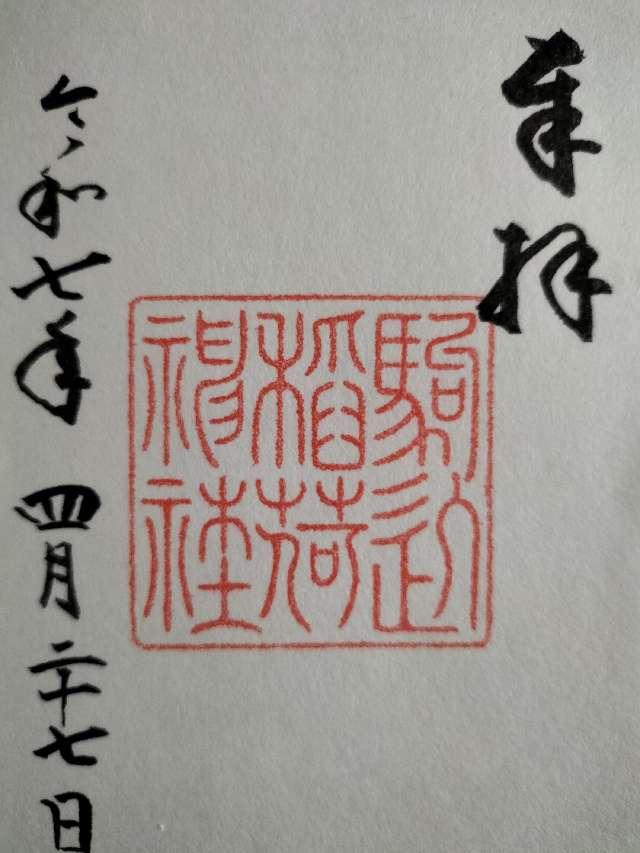 奉拝
駒込
稲荷
神社
令和七年 四月二十七日